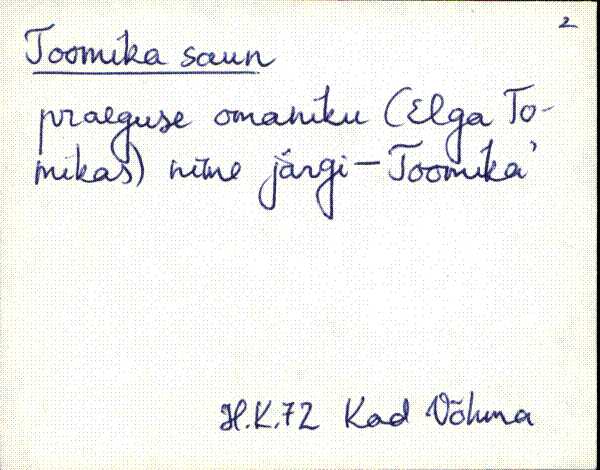 2
Toomika saun
praeguse omaniku (Elga To-
mikas) nime järgi – Toomika'
H.K.72 Kad Võhma